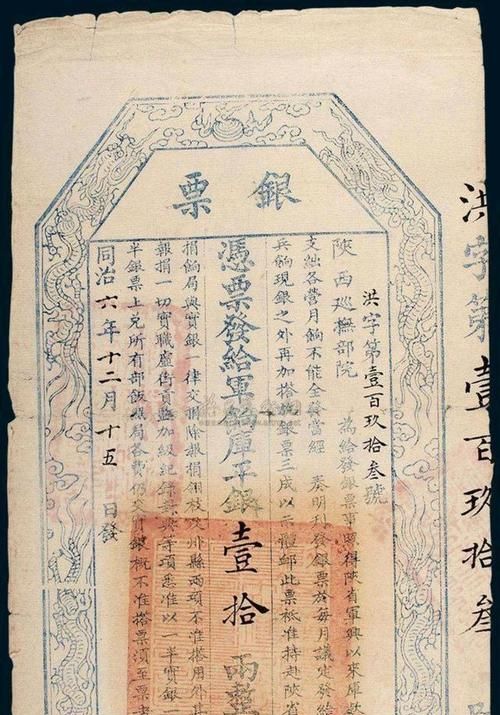 銀票
洪字第壹百玖拾叁
洪字第壹百玖拾叁號
陝西巡撫部院 為給發銀票事照得陝省軍興以來庫款
支絀各營月餉不能全發當經 奏明刊發銀票於每月議定發給
兵餉現銀之外再加搭放銀票三成以示體卹此票祗准持赴陝省
憑票發給軍餉庫平銀壹拾兩整
捐餉局與實銀一律交兌除報捐翎枝及州縣兩項不准搭用外其
報捐一切實職虛銜貢監加級紀錄封典等項悉准以一半實銀一
半銀票上兌所有部飯照局各費仍交實銀概不准搭票須至票者
同治六年十二月十五日發